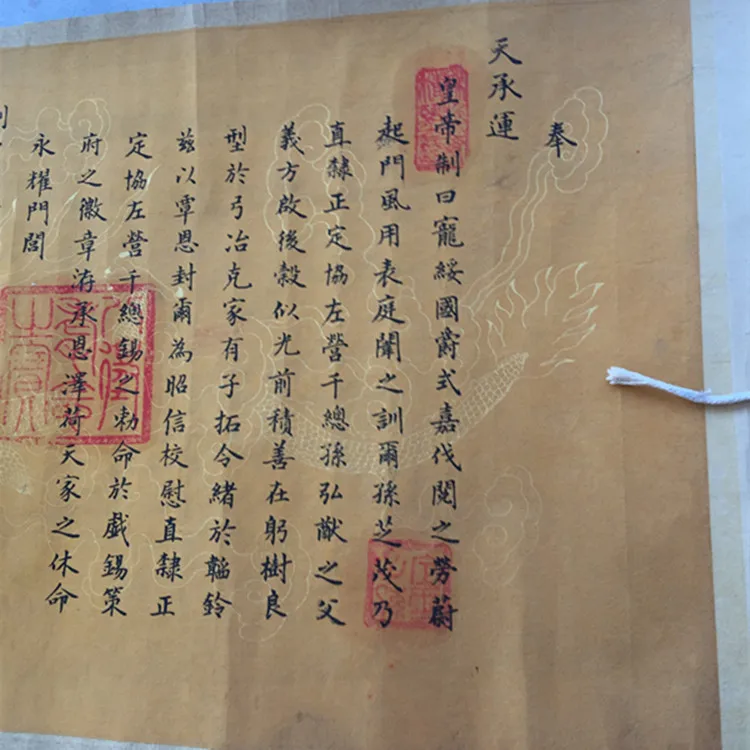 奉
天承運
皇帝制曰寵綏國爵式嘉伐閱之勞蔚
起門風用表庭闈之訓爾孫芝茂乃
直隸正定協左營千總孫弘猷之父
義方啟後穀似光前積善在躬樹良
型於弓冶克家有子拓令緒於韜鈐
茲以覃恩封爾為昭信校慰直隸正
定協左營千總錫之勅命於戲錫策
府之徽章洊承恩澤荷天家之休命
永耀門閭